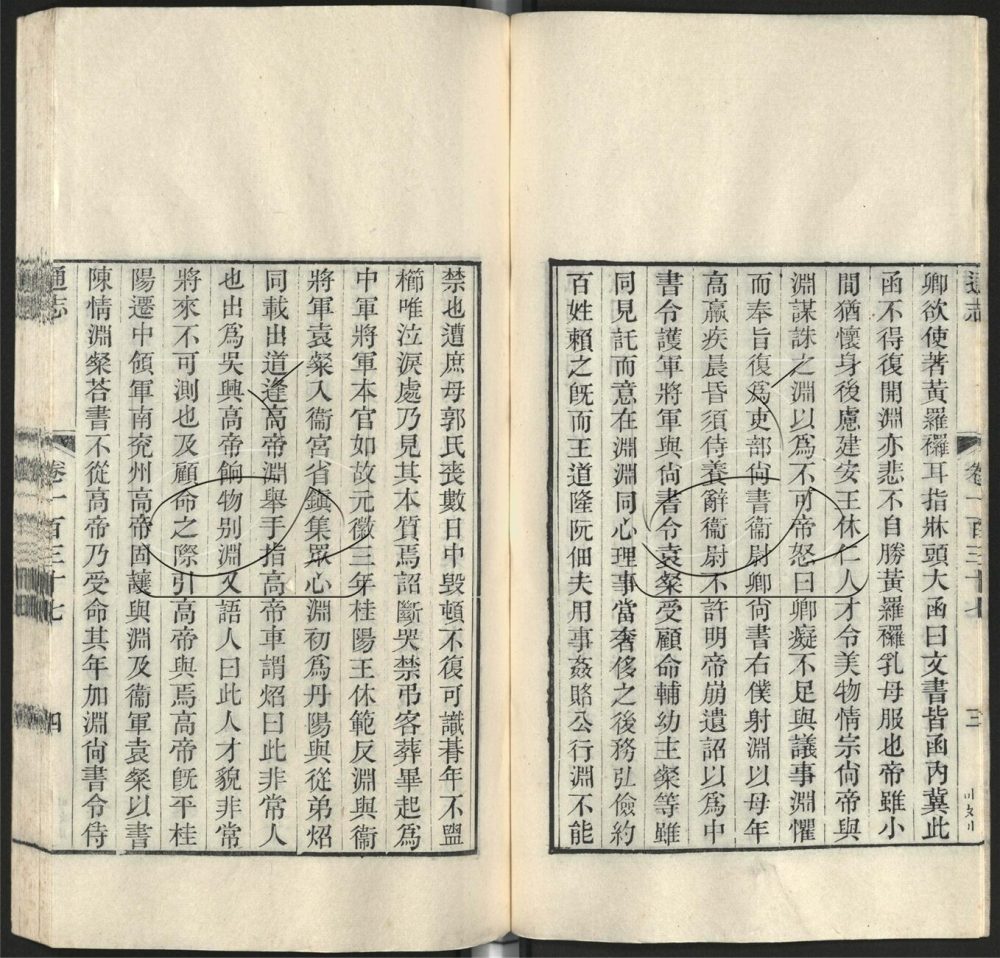 通志
卷一百三十七
三
卿欲使著黃羅襬耳指牀頭大函曰文書皆函內冀此
函不得復開淵亦悲不自勝黃羅襬乳母服也帝雖小
間猶懷身後慮建安王休仁人才令美物情宗尙帝與
淵謀誅之淵以爲不可帝怒曰卿癡不足與議事淵懼
而奉旨復爲吏部尙書衞尉卿尙書右僕射淵以母年
高羸疾晨昏須侍養辭衞尉不許明帝崩遺詔以爲中
書令護軍將軍與尙書令袁粲受顧命輔幼主粲等雖
同見託而意在淵淵同心理事當奢侈之後務弘儉約
百姓賴之旣而王道隆阮佃夫用事姦賂公行淵不能
禁也遭庶母郭氏喪數日中毀頓不復可識朞年不盥
櫛唯泣淚處乃見其本質焉詔斷哭禁弔客葬畢起爲
中軍將軍本官如故元徽三年桂陽王休範反淵與衞
將軍袁粲入衞宮省鎭集眾心淵初爲丹陽與從弟炤
同載出道逢高帝淵舉手指高帝車謂炤曰此非常人
也出爲吳興高帝餉物別淵又語人曰此人才貌非常
將來不可測也及顧命之際引高帝與焉高帝旣平桂
陽遷中領軍南兖州高帝固讓與淵及衞軍袁粲以書
陳情淵粲荅書不從高帝乃受命其年加淵尙書令侍
通志
卷一百三十七
四